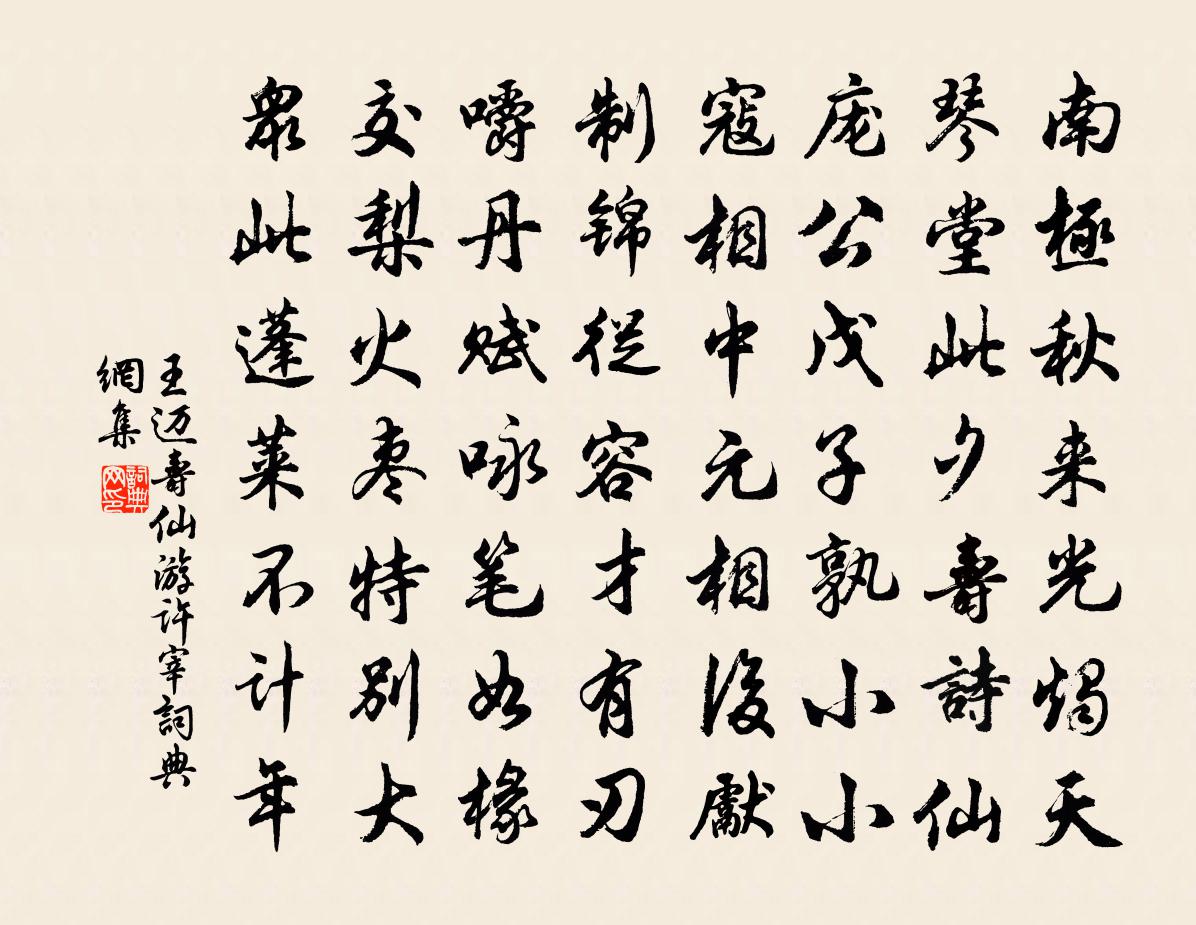 南極秋来光燭天
琴堂此夕壽詩仙
庞公戊子孰小小
寇相中元相後獻
制锦從容才有刃
嚼丹赋咏笔如椽
交梨火枣特别大
眾此蓬莱不计年
王迈壽仙游许宰詞典
網集
詞典
网印